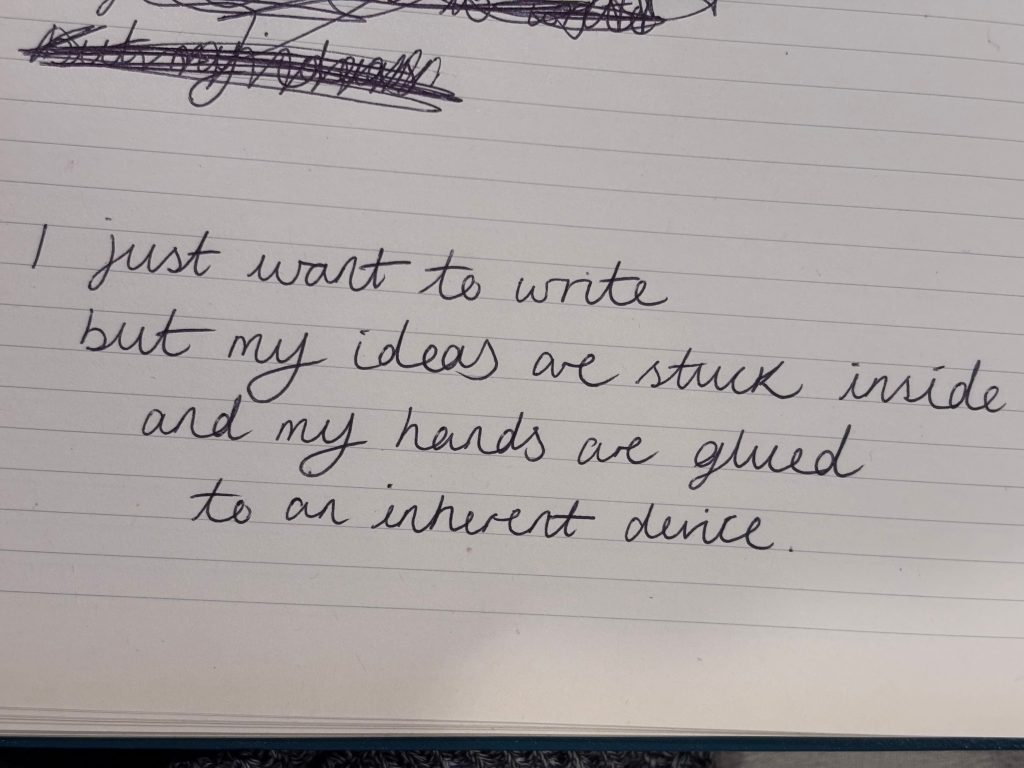 I just want to write
but my ideas are stuck inside
and my hands are glued
to an inherent device.